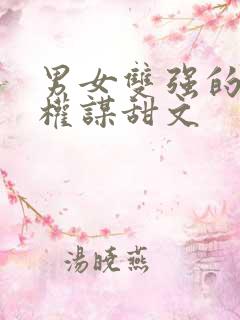 男女雙強的
權謀甜文
湯曉燕